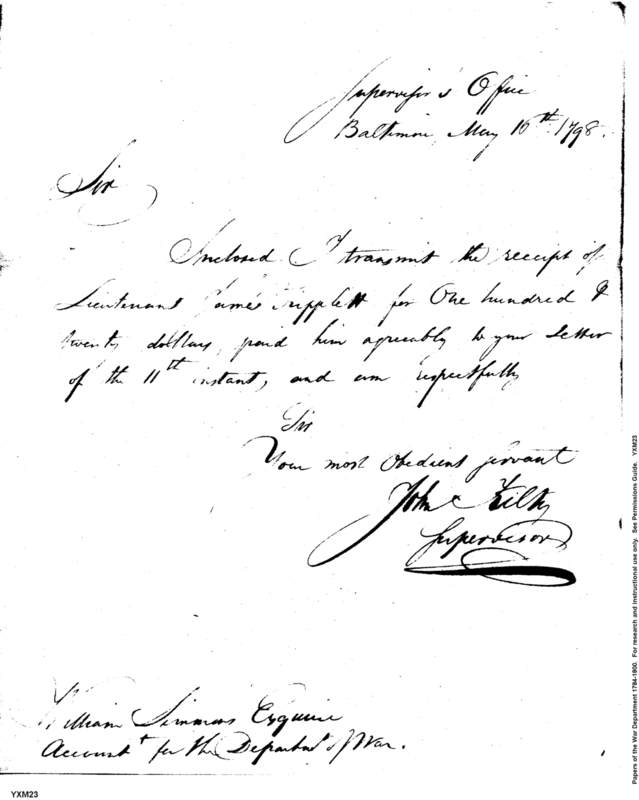 Supervisor's Office
Baltimore, May 16th 1798.
Sir
Inclosed I transmit the receipt of
Lieutenant James Tripplett for One hundred &
twenty dollars, paid him agreeably to your Letter
of the 11th instant, and am respectfully
Sir
Your most Obedient servant
John Kilty
Supervisor
William Simmons Esquire
Accountt for the Departmt of War.
Papers of the War Department 1784-1800. For research and instructional use only. See Permissions Guide. YXM23
YXM23